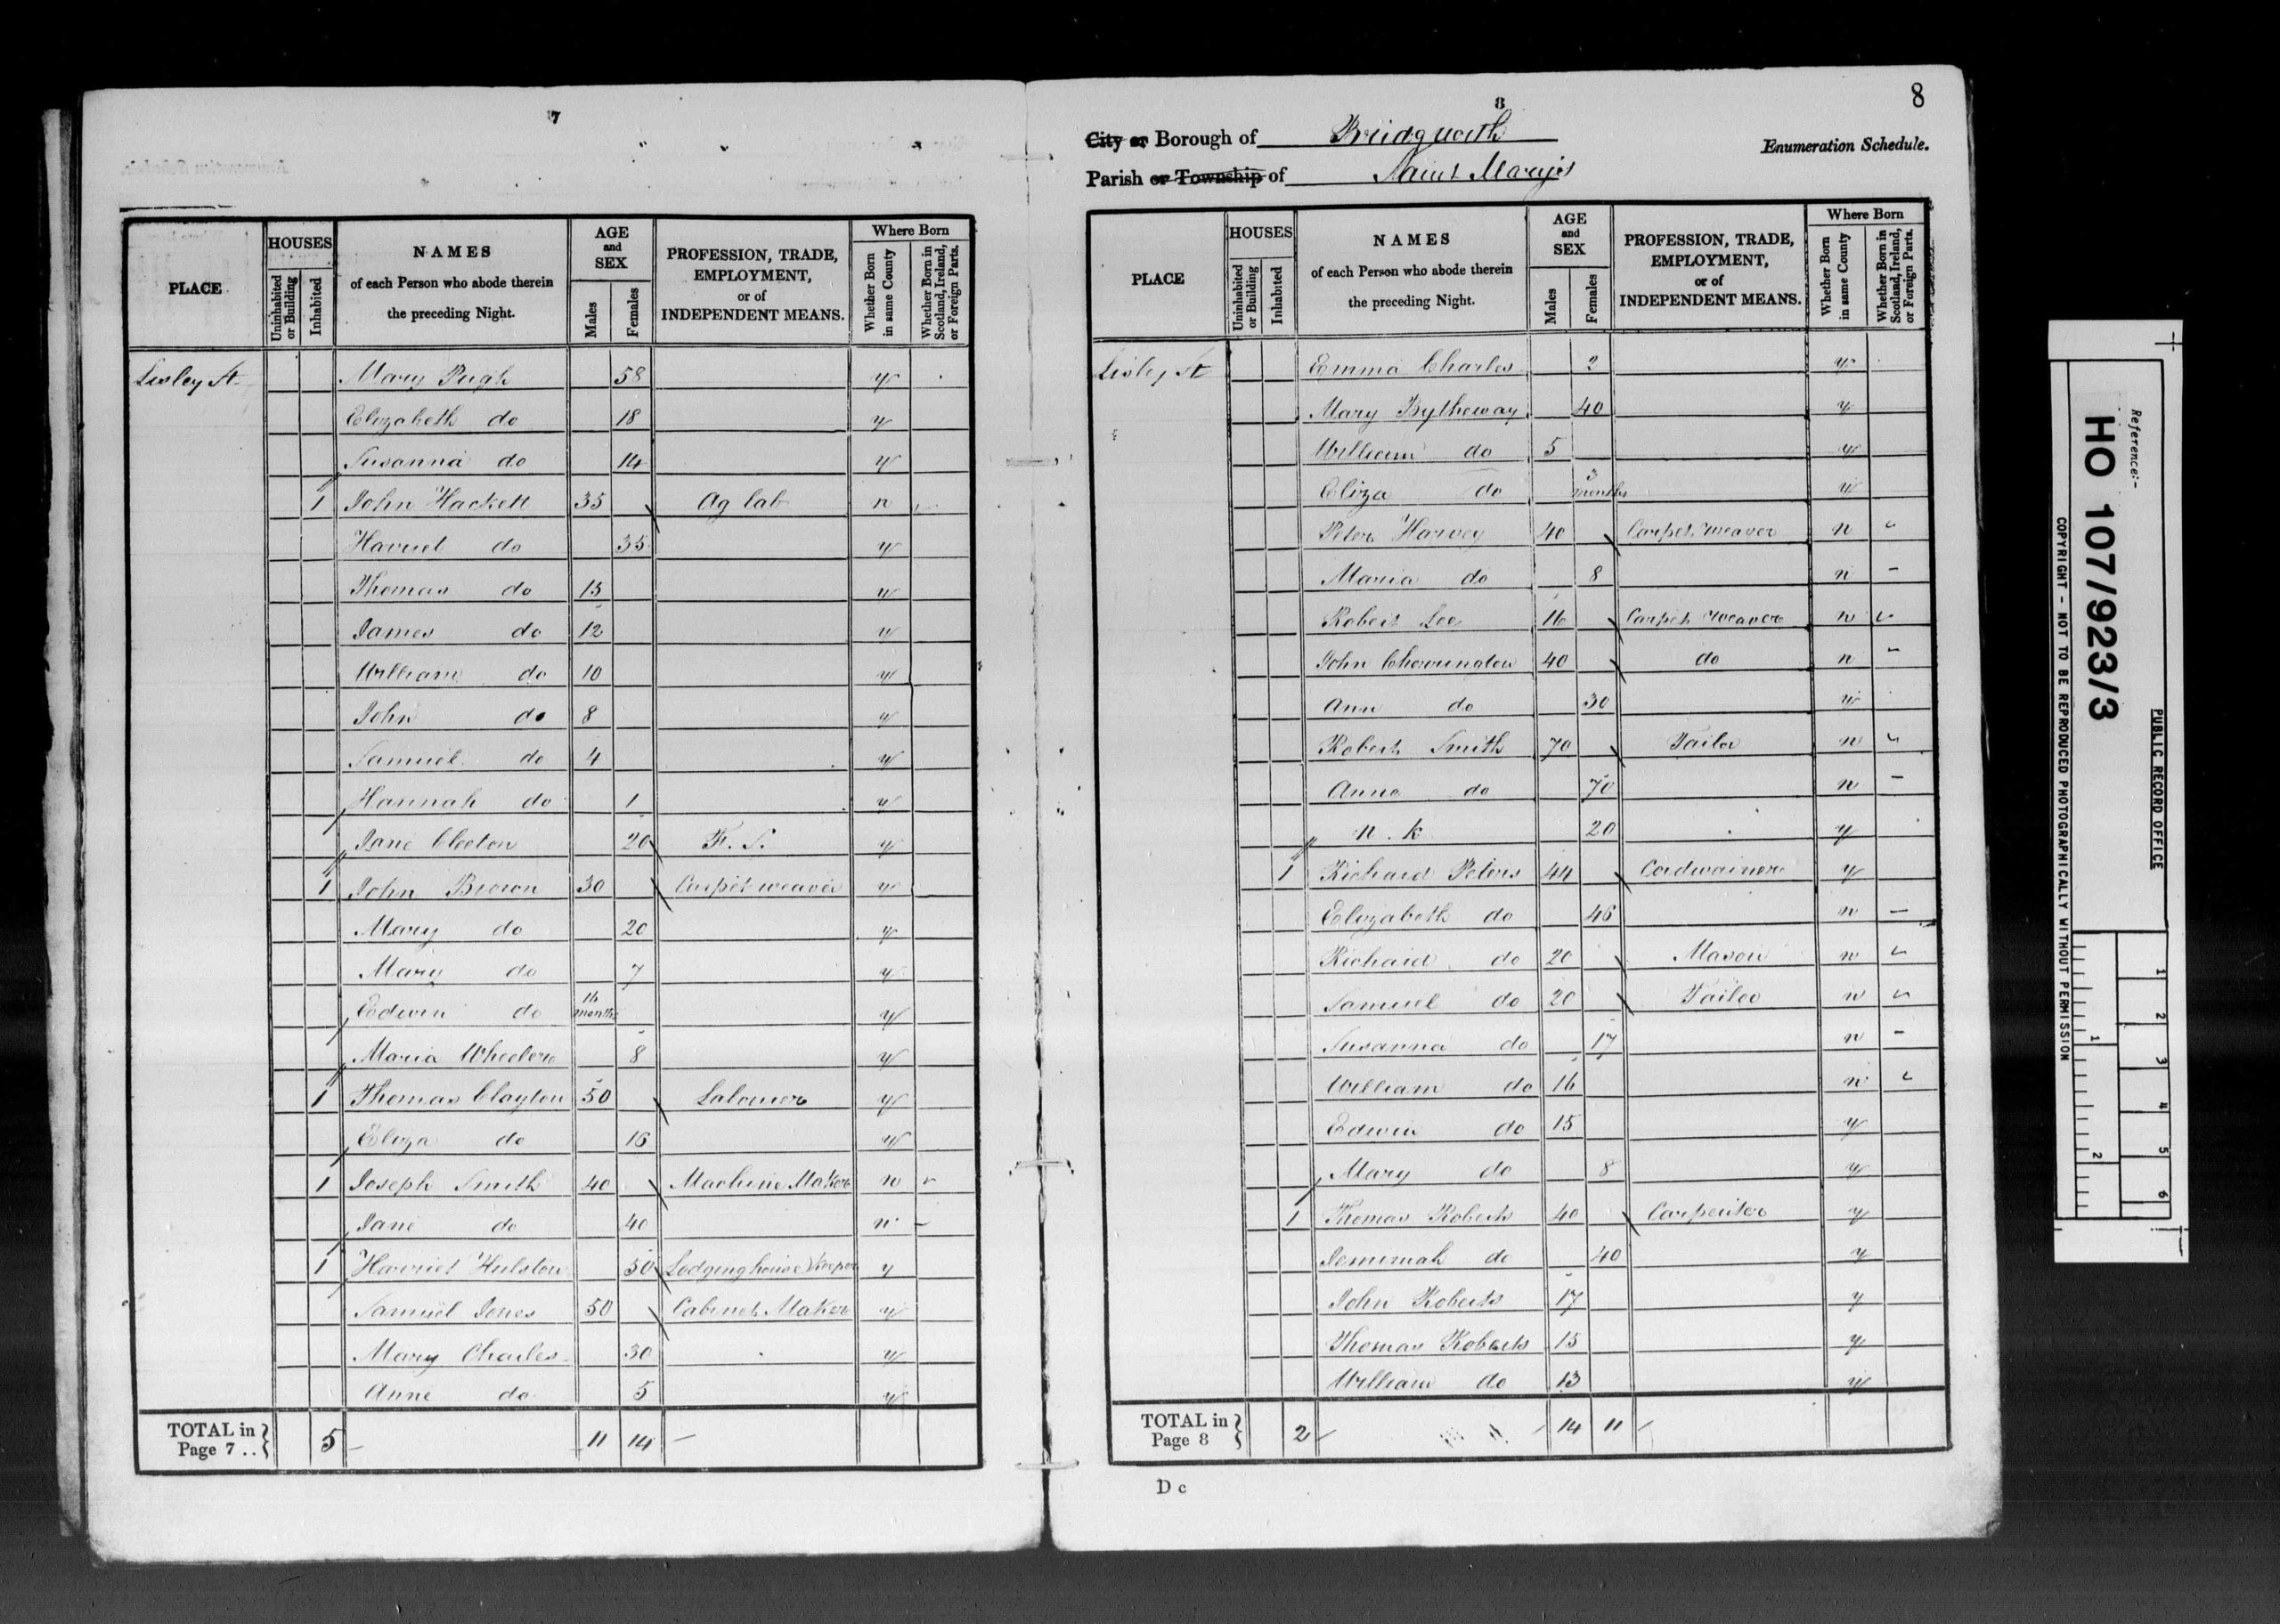 7
PLACE
HOUSES
Uninhabited or Building
Inhabited
NAMES
of each Person who abode therein
the preceding Night.
AGE
and
SEX
Males
Females
PROFESSION, TRADE,
EMPLOYMENT,
or of
INDEPENDENT MEANS.
Where Born
Whether Born in same County
Whether Born in Scotland, Ireland, or Foreign Parts.
Lisley St Mary Pugh 58 y
Elizabeth do 18 y
Susanna do 14 y
1 John Hackett 35 Ag lab n
Harriet do 35 y
Thomas do 15 y
James do 12 y
William do 10 y
John do 8 y
Samuel do 4 y
Hannah do 1 y
Jane Cleeton 20 F. S. y
1 John Brown 30 Carpet weaver y
Mary do 20 y
Mary do 7 y
Edwin do 16 months y
Maria Wheeler 8 y
1 Thomas Clayton 50 Labourer y
Eliza do 16 y
1 Joseph Smith 40 Machine Maker n
Jane do 40 n -
1 Harriet Hulston 50 Lodging house Keeper y
Samuel Jones 50 Cabinet Maker y
Mary Charles 30 y
Anne do 5 y
TOTAL in Page 7 .. } 5 11 14
8
8
City or Borough of Bridgnorth
Enumeration Schedule.
Parish or Township of Saint Mary's
PLACE
HOUSES
Uninhabited or Building
Inhabited
NAMES
of each Person who abode therein
the preceding Night.
AGE
and
SEX
Males
Females
PROFESSION, TRADE,
EMPLOYMENT,
or of
INDEPENDENT MEANS.
Where Born
Whether Born in same County
Whether Born in Scotland, Ireland, or Foreign Parts.
Lisley St Emma Charles 2 y
Mary Bytheway 40 y
William do 5 y
Eliza do 3 months y
Peter Harvey 40 Carpet Weaver n
Maria do 8 n -
Robert Lee 16 Carpet Weaver n
John 40 do n -
Ann do 30 y
Robert Smith 70 Tailor n
Anne do 70 n -
n. k 20 y
1 Richard Peters 44 Cordwainer y
Elizabeth do 46 n -
Richard do 20 Mason n
Samuel do 20 Tailor n
Susanna do 17 n -
William do 16 n
Edwin do 15 y
Mary do 8 y
1 Thomas Roberts 40 Carpenter y
Jemimah do 40 y
John Roberts 17 y
Thomas Roberts 15 y
William do 13 y
TOTAL in Page 8 } 2 14 11
D c
PUBLIC RECORD OFFICE
Reference:-
HO 107/923/3
COPYRIGHT - NOT TO BE REPRODUCED PHOTOGRAPHICALLY WITHOUT PERMISSION
1 2 3 4 5 6
1 2